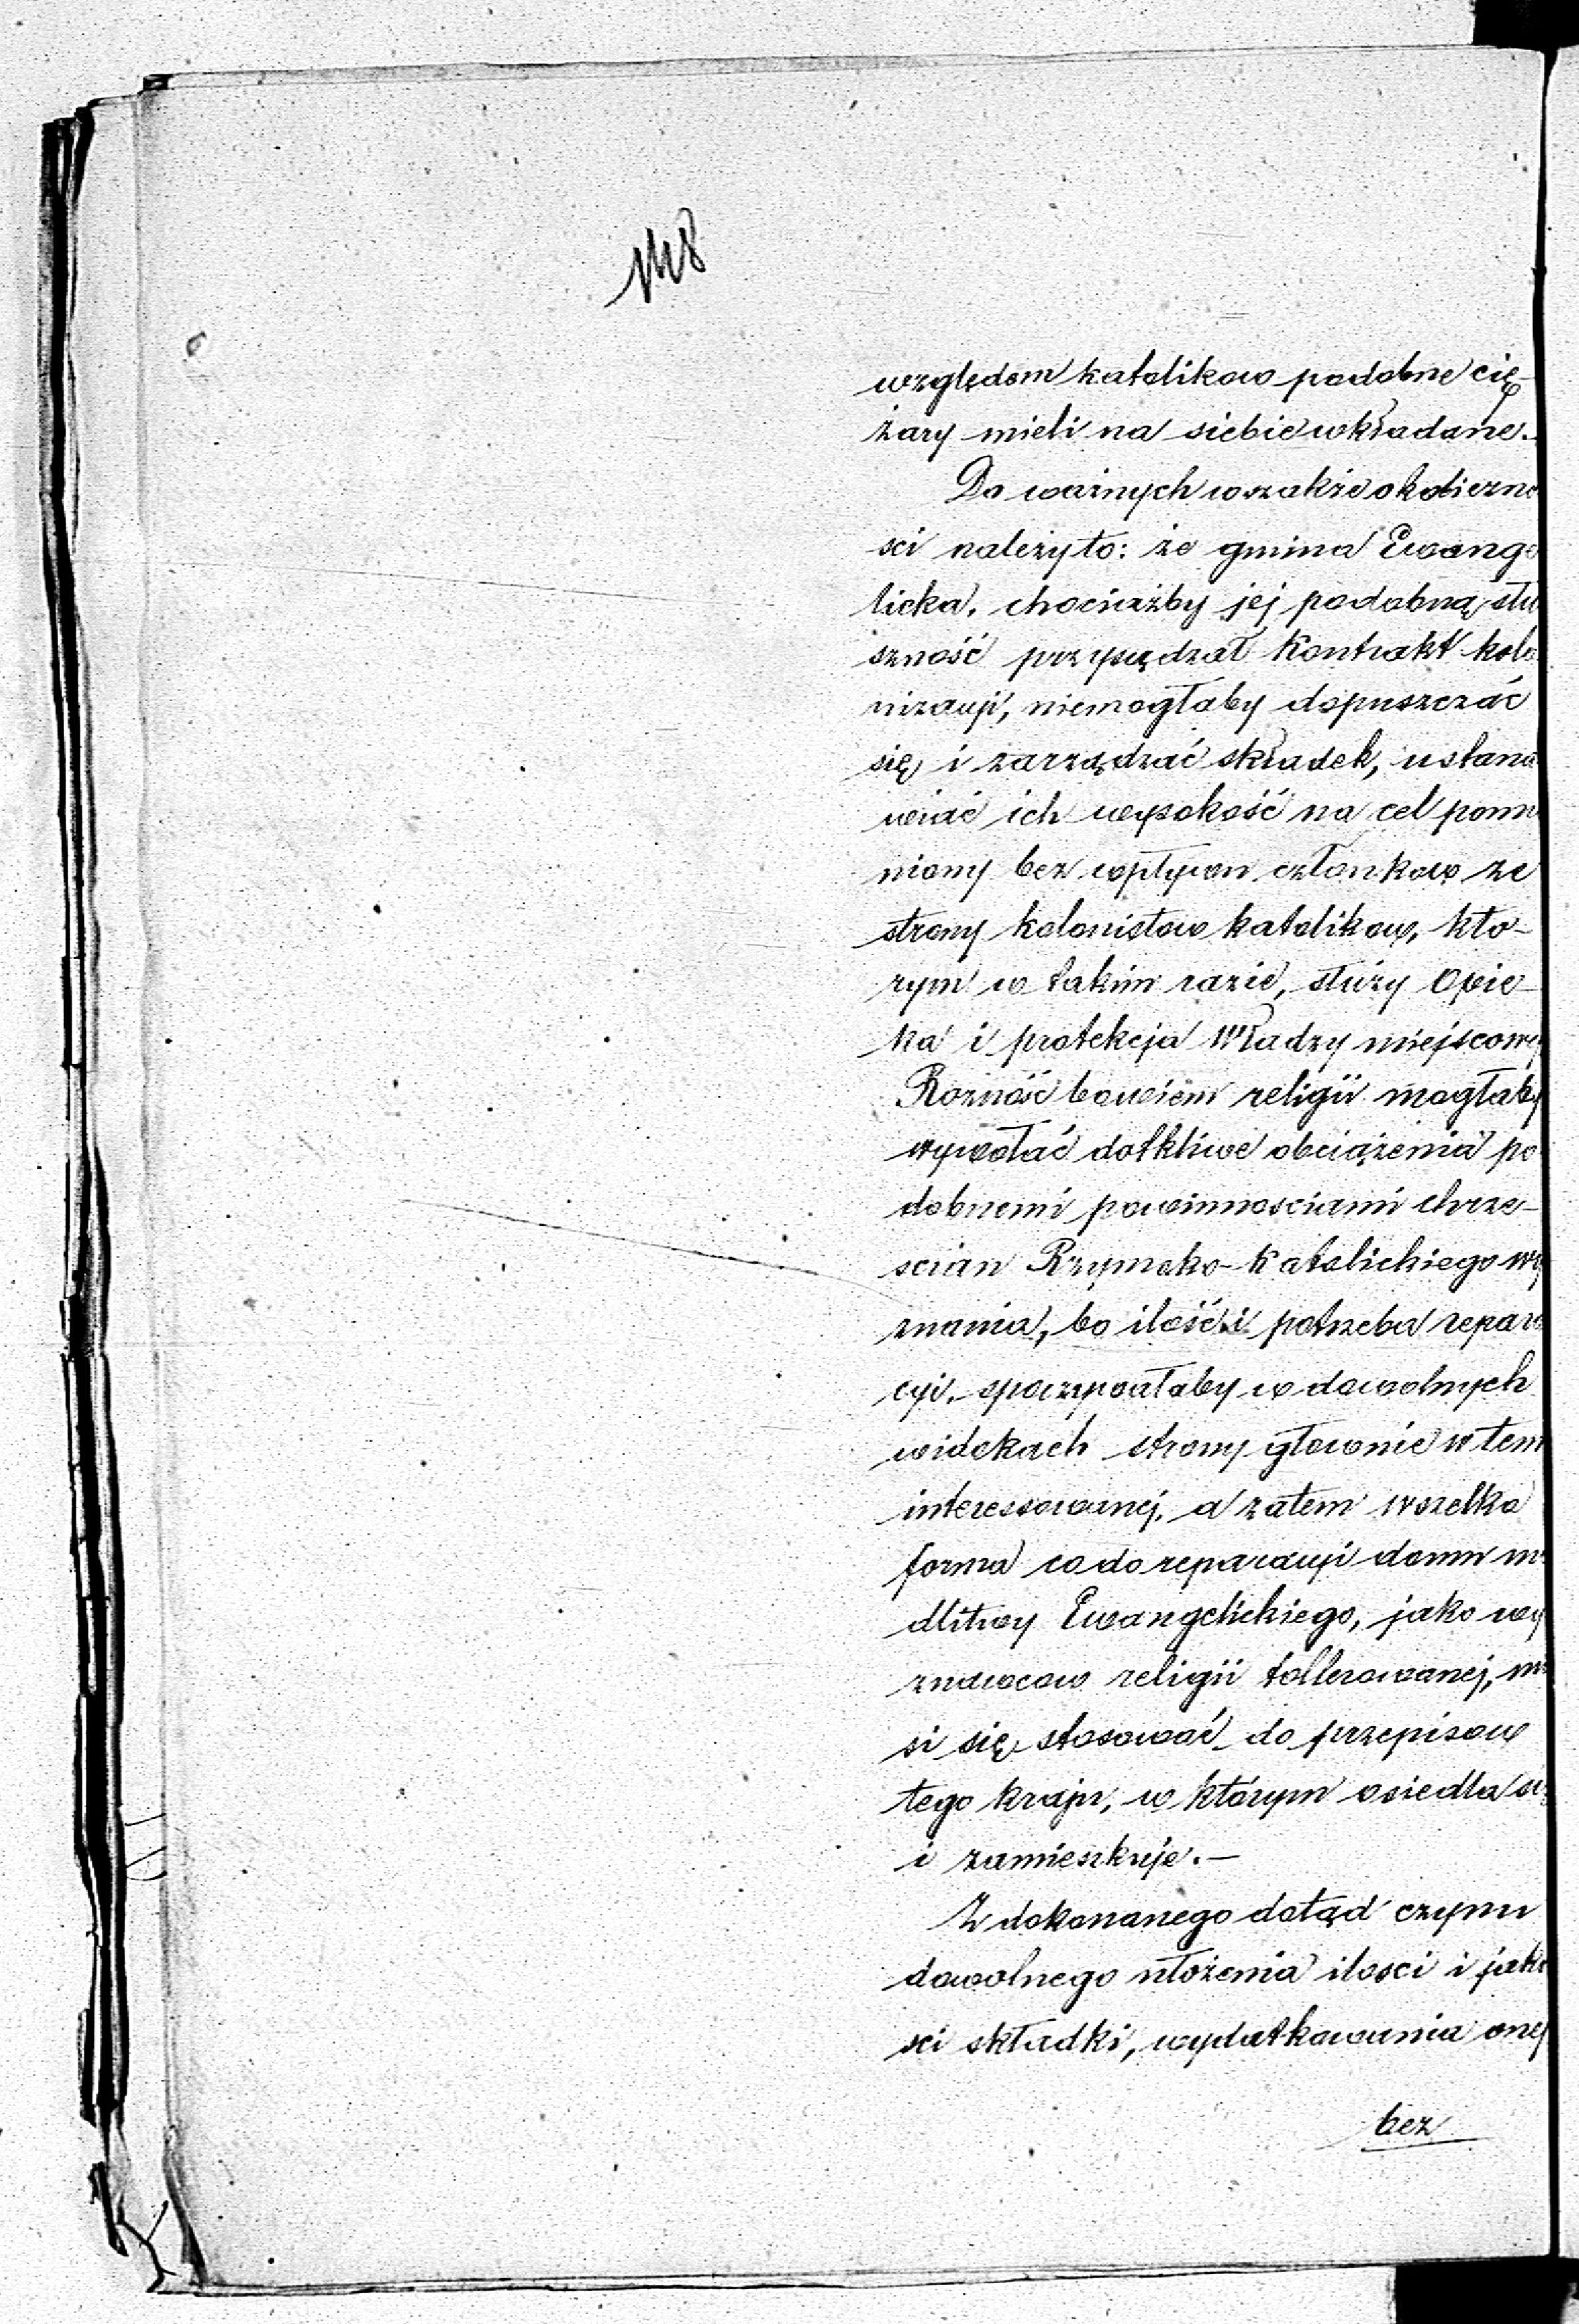 148
względem katolikow podobne cię-
żary mieli na siebie wkładane.-
Do ważnych wszakże okoliczno
sci należyto: że gmina Ewange
licka, chociażby jej podobną słu
szność przysądzał Kontrakt kolo
nizacyi, niemogłaby dopuszczać
się i zarządzać składek, ustana
wiać ich wysokość na cel pomie
niony bez wpływu członkow ze
strony kolonistow katolikow, kto-
rym w takim razie, służy Opie-
ka i protekcja Władzy miejscowej
Rozność bowiem religii mogłaby
wywołać dotkliwe obciążenia po
dobnemi powinnosciami chrze-
scian Rzymsko-Katolickiego wy
znania, bo ilość i potrzeba repara
cyi, spoczywałaby w dowolnych
widokach strony głownie w tem
interessowanej, a zatem wszelka
forma co do reparacyi domu mo
dlitwy Ewangelickiego, jako wy
znawcow religii tollerowanej, mu
si się stosować do przepisow
tego kraju, w którym osiedla się
i zamieszkuje.-
Z dokonanego dotąd czynu
dowolnego ułożenia ilosci i jako
sci składki, wydatkowania onej
bez